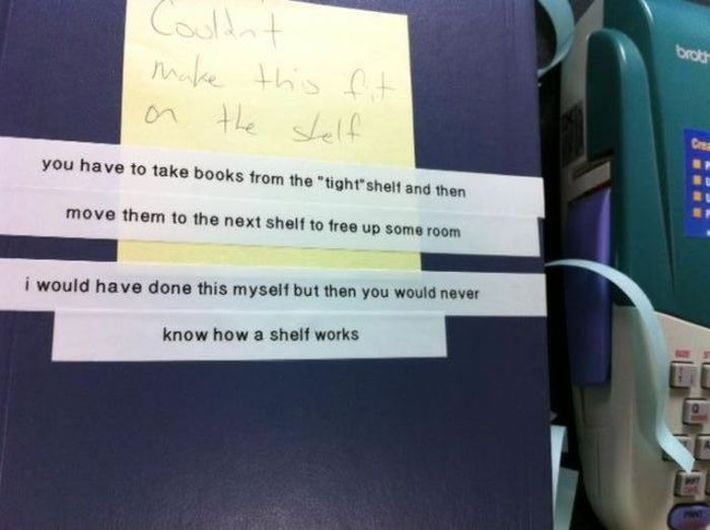 Couldn't
make this fit
on the shelf
you have to take books from the "tight"shelf and then
move them to the next shelf to free up some room
i would have done this myself but then you would never
know how a shelf works
broth
Crea
Q
A